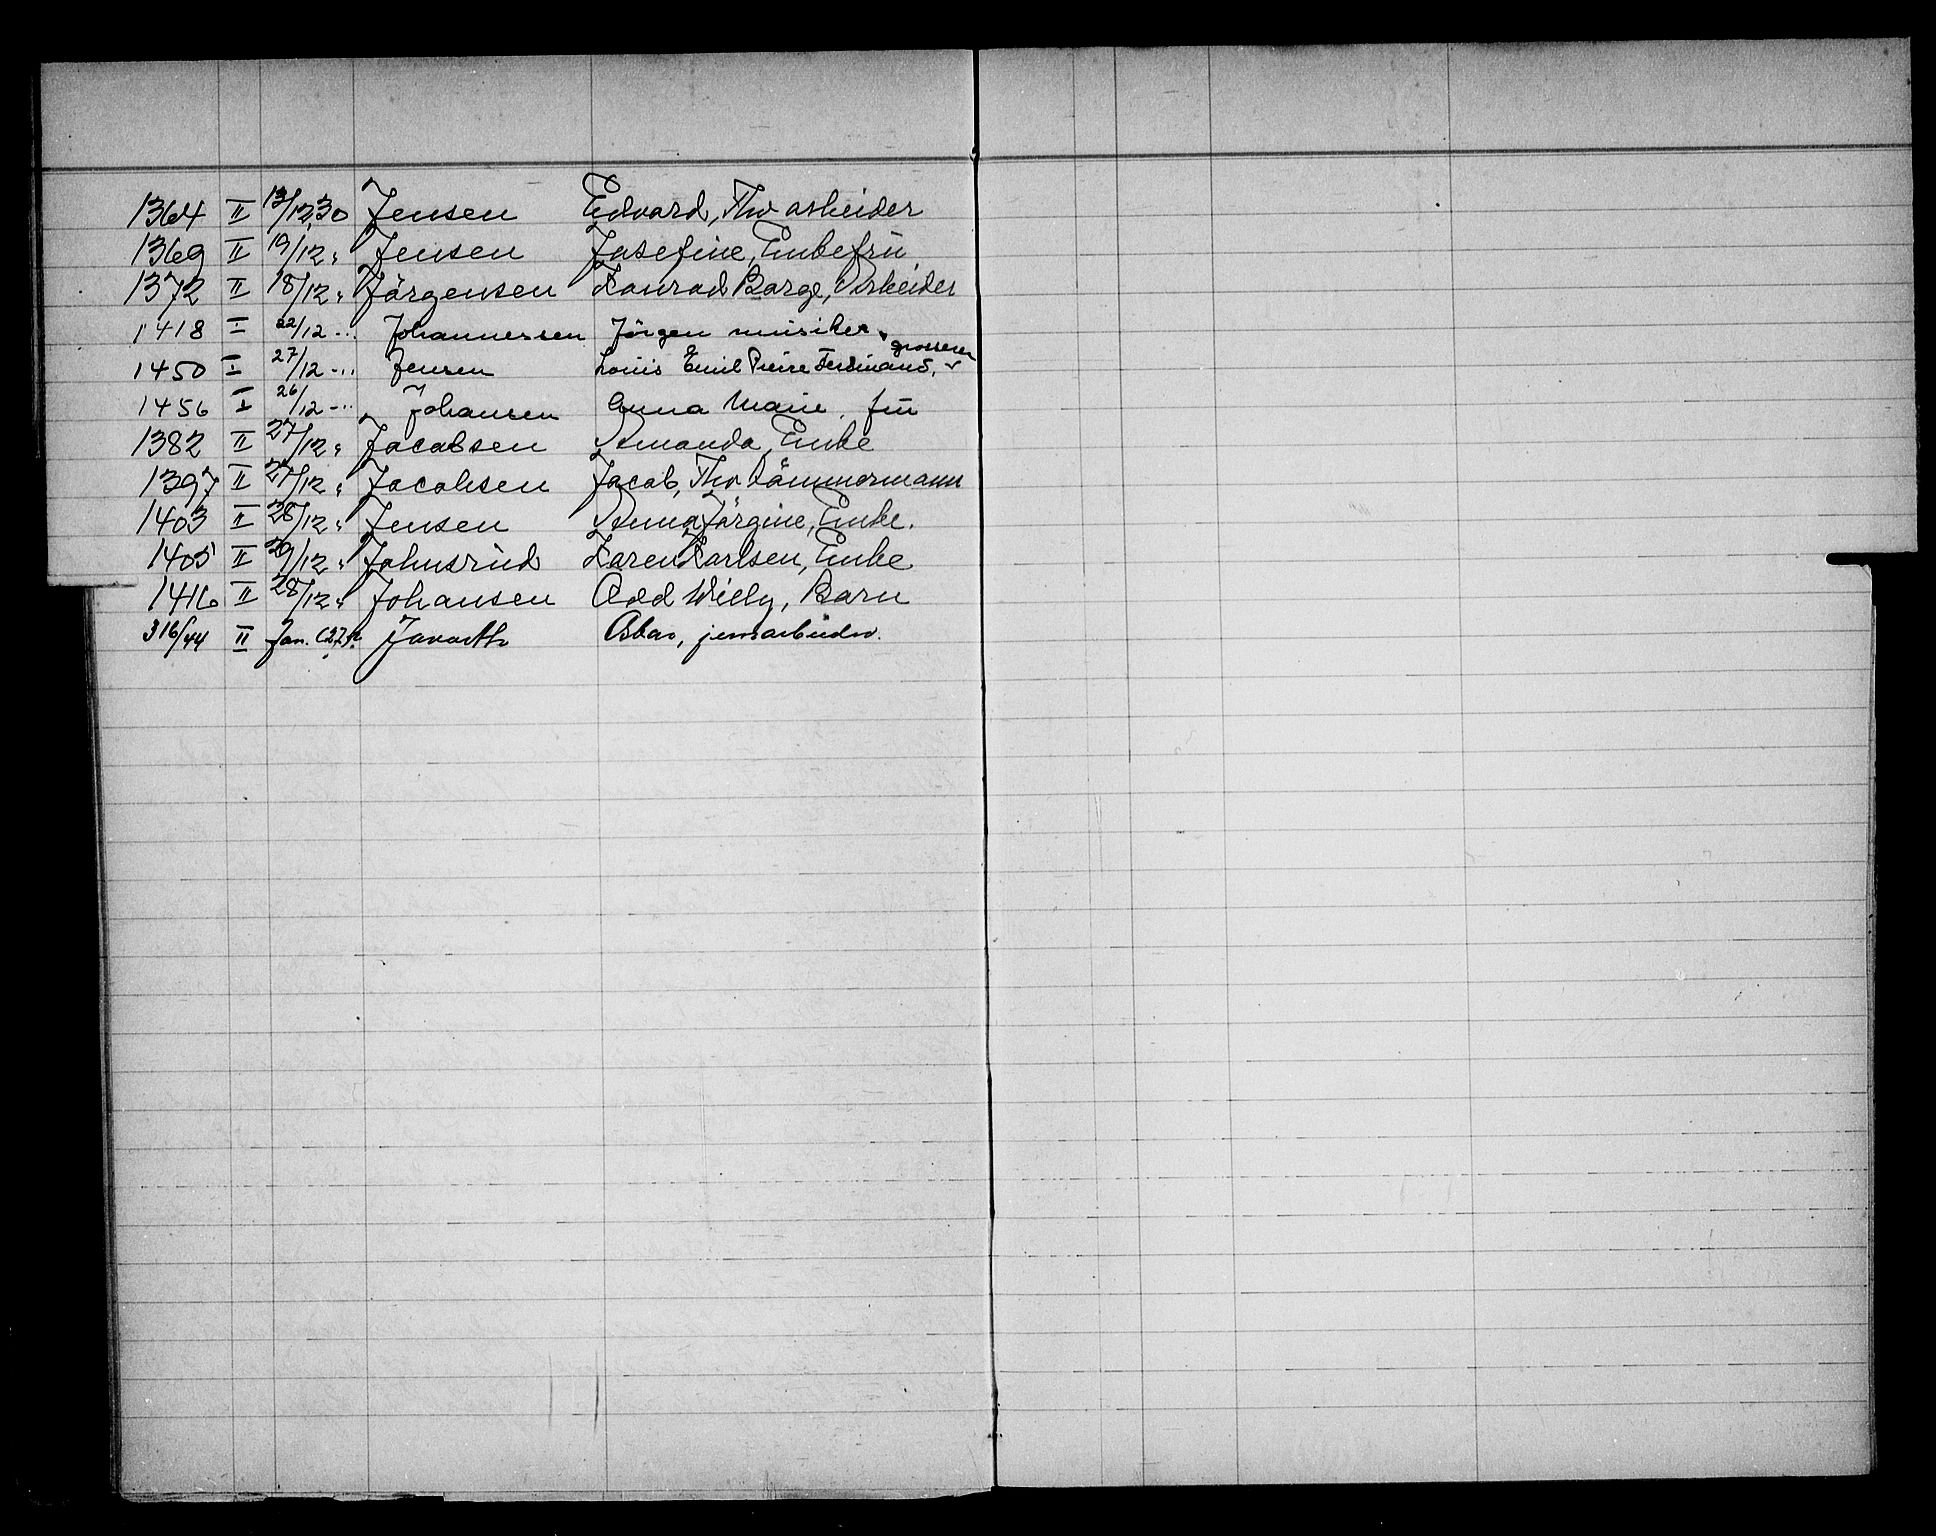 1364 II 13/12 30 Jensen Edvard, Thv arbeider
1369 II 19/12 " Jensen Josefine, Enkefru
1372 II 18/12 " Jörgensen Konrad Borge, Arbeider
1418 I 22/12 - " Johannessen Jörgen musiker
grosserer
1450 I 27/12 - " Jensen Louis Emil Pierre Ferdinand,
1456 I 26/12 - " Johansen Anna Marie, fru
1382 II 27/12 " Jacobsen Amanda, Enke
1397 II 27/12 " Jacobsen Jacob, Thv tömmermann
1403 II 28/12 " Jensen Anna Jörgine, Enke.
1405 II 29/12 " Johnsrud Karen Karlsen, Enke
1416 II 28/12 " Johansen Odd Willy, Barn
316/44 II Jan. (27de Oskar, jernarbeider.